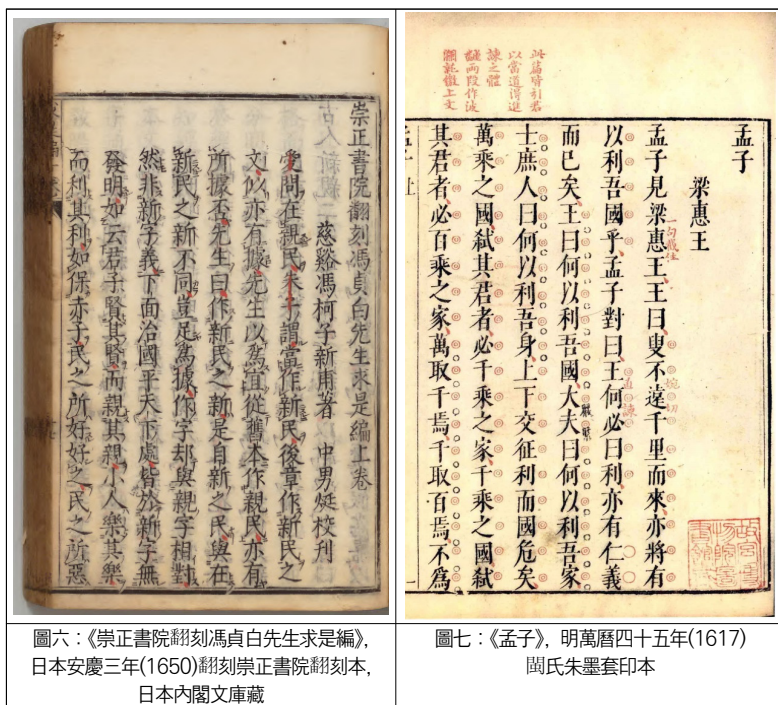 崇正書院翻刻馮貞白先生求是編上卷
慈谿馮柯子新甫著　中男烶校刊
愛問在親民朱子謂當作新民後章作新民之
文似亦有據先生以爲宜從舊本作親民亦有
所據否先生曰作新民之新是自新之民與在
新民之新不同豈足爲據作字却與親字相對
然非新字義下面治國平天下處皆於新字無
發明如云君子賢其賢而親其親小人樂其樂
而利其利如保赤子民之所好好之民之所惡
此篇皆引君
以當道得進
諫之體
兩段作波
上文
孟子
梁惠王
孟子見梁惠王王曰叟不遠千里而來亦將有
以利吾國乎孟子對曰王何必曰利亦有仁義
而已矣王曰何以利吾國大夫曰何以利吾家
士庶人曰何以利吾身上下交征利而國危矣
萬乘之國弑其君者必千乘之家千乘之國弑
其君者必百乘之家萬取千焉千取百焉不爲
孟子 上
一
圖六：《崇正書院翻刻馮貞白先生求是編》,
日本安慶三年(1650)翻刻崇正書院翻刻本,
日本內閣文庫藏
圖七：《孟子》, 明萬曆四十五年(1617)
閔氏朱墨套印本